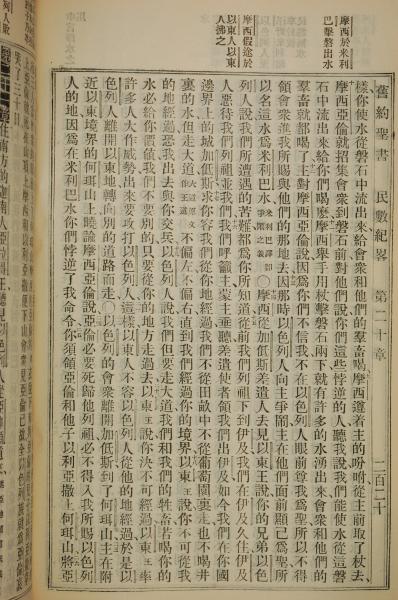 舊約聖書 民數紀畧 第二十章 二百二十
摩西於米利
巴擊磐出水
摩西假途於
以東人以東
人拂之
樣你使水從磐石中流出來給會衆和他們的羣畜喝摩西遵着主的吩咐從主前取了杖去
摩西亞倫就招集會衆到磐石前對他們說你們這些悖逆的人聽我說我們能使水從這磐
石中流出來給你們喝麽摩西舉手用杖擊磐石兩下就有許多的水湧出來會衆和他們的
羣畜就都喝了主對摩西亞倫說因爲你們不信我不在以色列人眼前尊我爲聖所以不得
領會衆進我所賜與他們的那地去因那時以色列人向主爭鬧主在他們面前顯己爲聖所
以名這水爲米利巴水米利巴譯卽爭鬧之義○摩西從加低斯差遣人去見以東王說你的兄弟以色
列人說我們所遭遇的苦難都爲你所知道從前我們列祖下到伊及我們在伊及久住伊及
人惡待我們列祖並我們我們呼籲主蒙主垂聽差遣使者領我們出伊及如今我們在你國
邊界上的城加低斯求你容我們從你地經過我們不從田畝中不從葡萄園裏走也不喝井
裏的水但走大道大道原文作王道不偏左不偏右直到我們經過你的境界以東王說你不可從我
的地經過恐我出去與你交兵以色列人說我們但要走大道我們和我們的牲畜若喝你的
水必給你價値我們不要別的只要從你的地方走過去以東王說你決不可經過以東王率
許多人大作威勢出來要攻打以色列人這樣以東人不容以色列人從他的地經過於是以
色列人離開以東地轉向別的道路而走○以色列的會衆離開加低斯到了何珥山主在附
近以東境界的何珥山上曉諭摩西亞倫說亞倫必要死歸他列祖必不得入我所賜以色列
人的地因爲在米利巴水你們悖逆了我命令你須領亞倫和他子以利亞撒上何珥山將亞